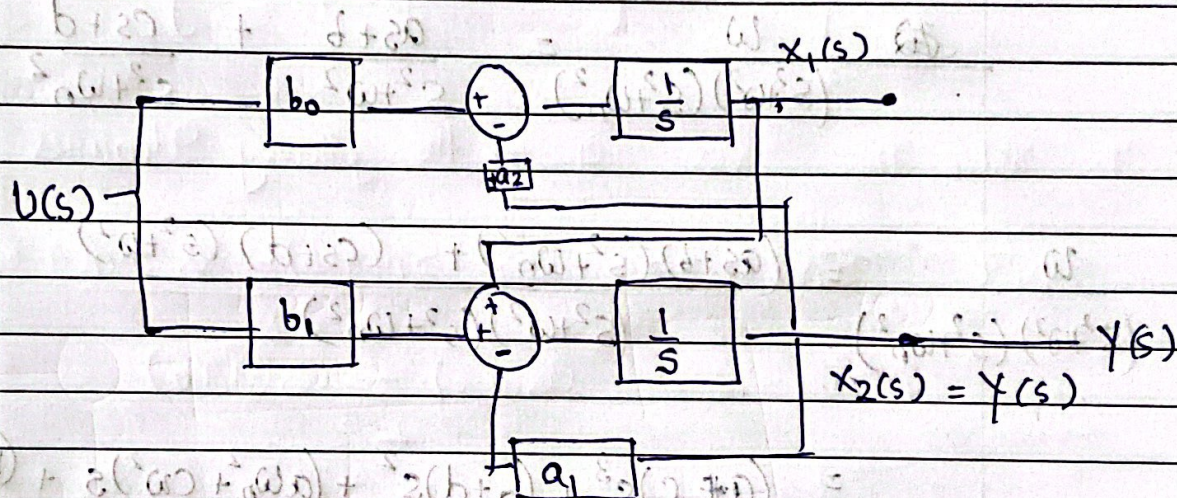 x₁(s)
b₀ + - 1/s
a₂
U(s)
b₁ + + - 1/s Y(s)
x₂(s) = Y(s)
a₁